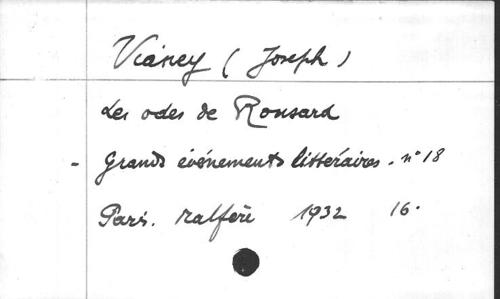 Vianey (Joseph)
Les odes de Ronsard
- Grands événements littéraires. n° 18
Paris. Malfère 1932 16°